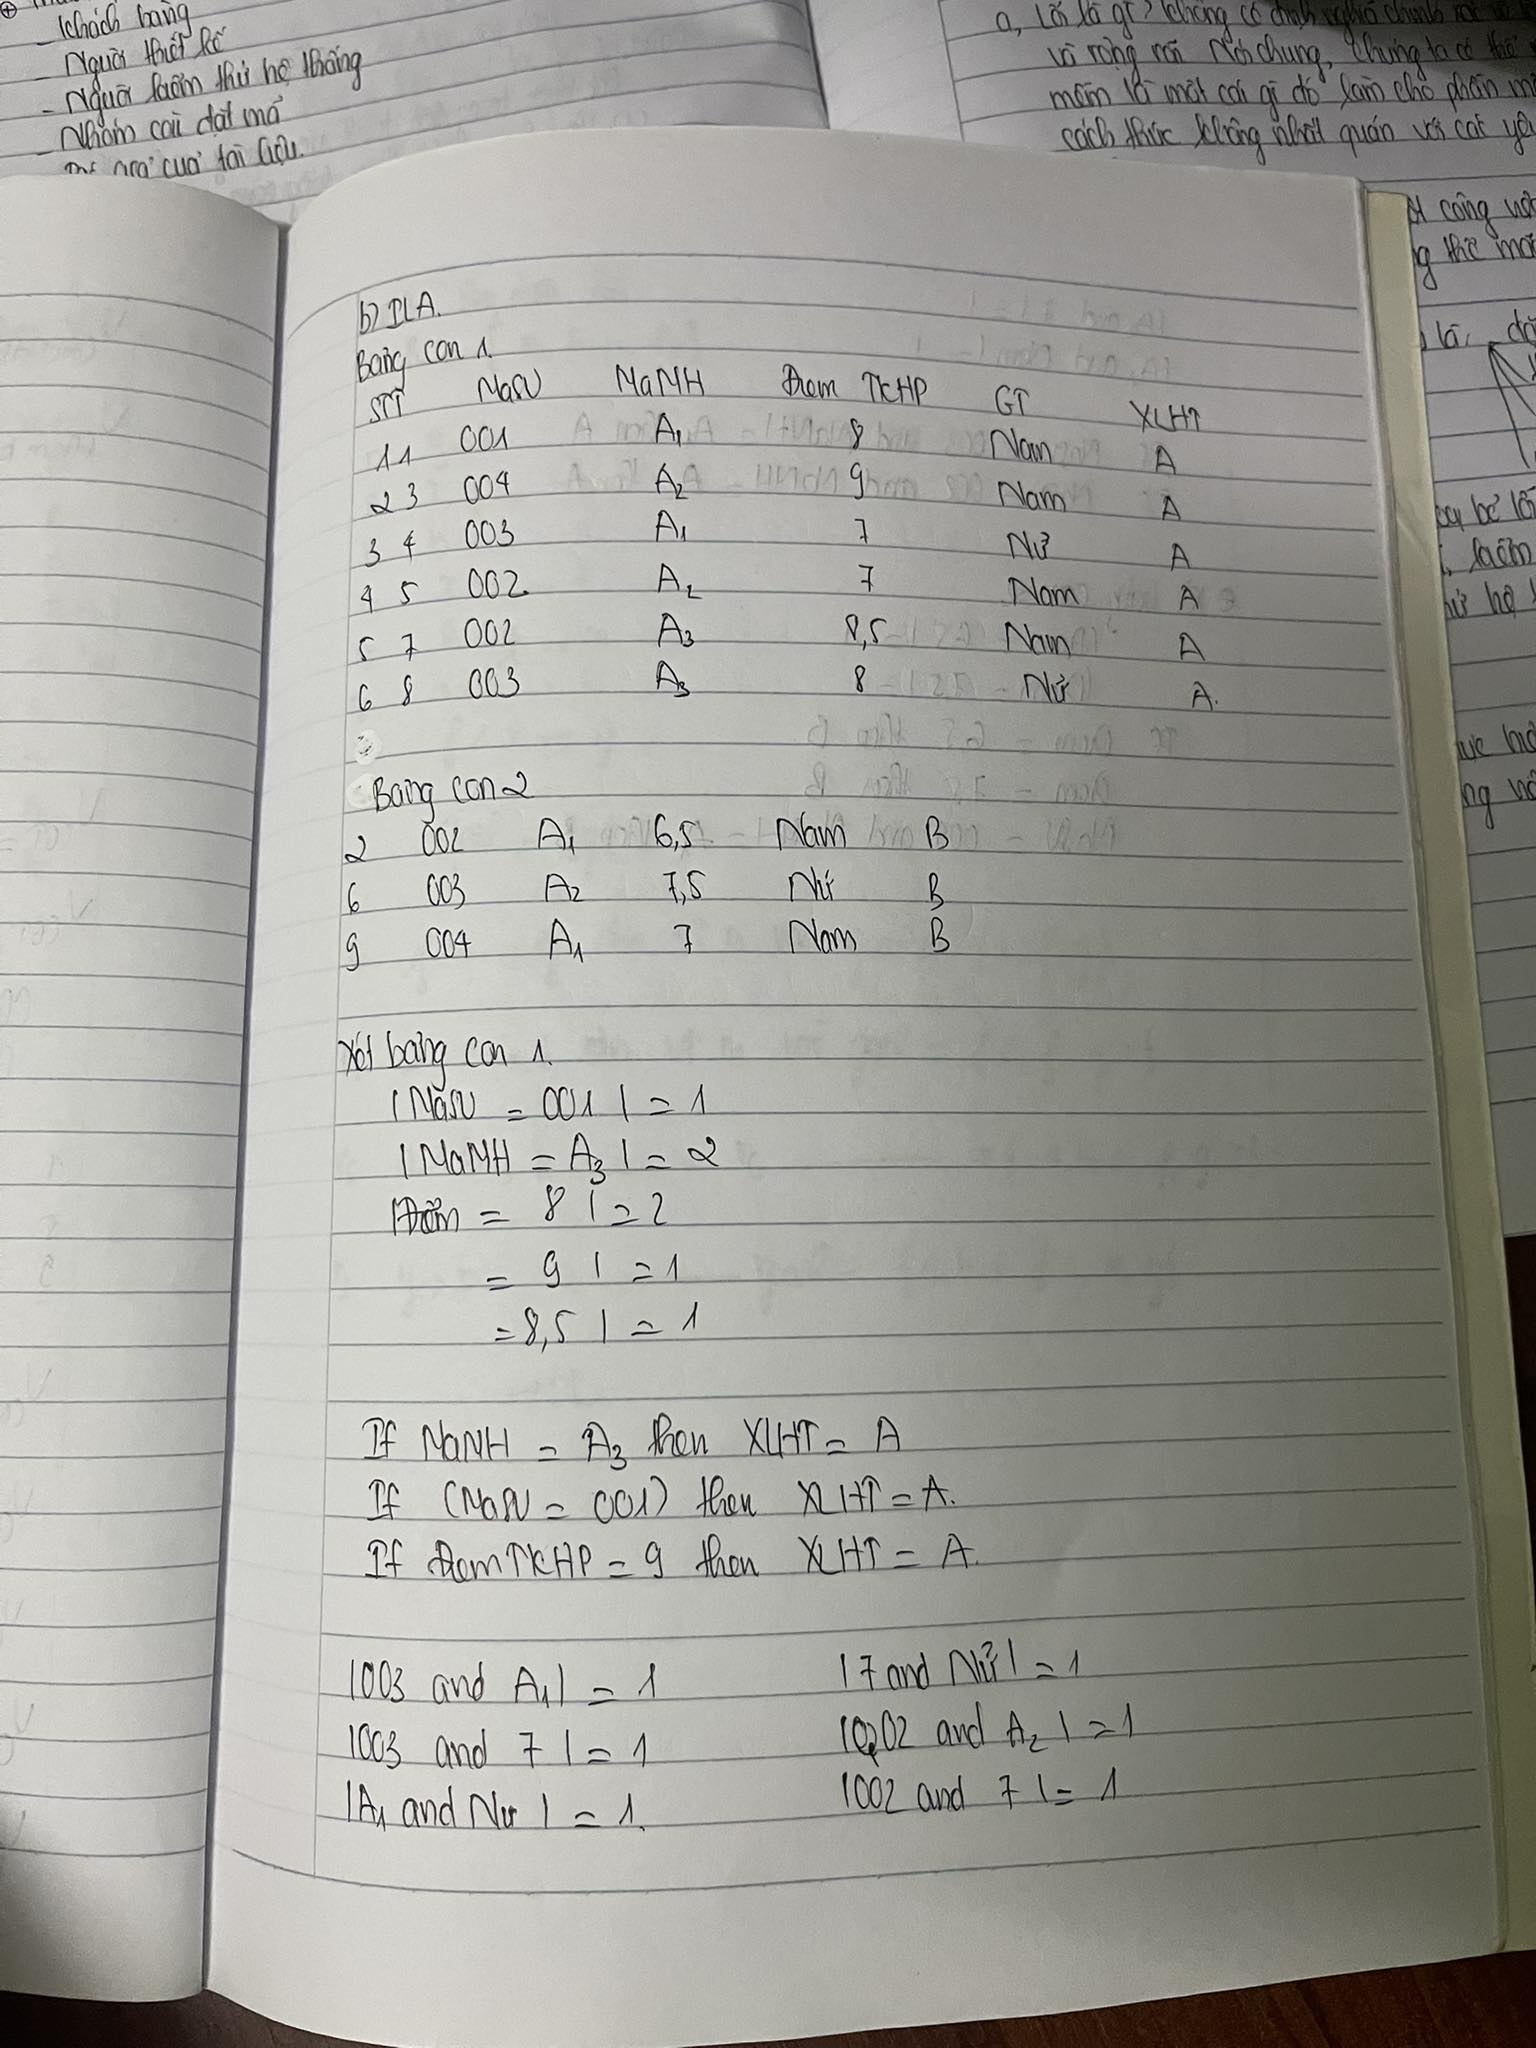 - Khách hàng
- Người thiết kế
- Người kiểm thử hệ thống
- Nhóm cài đặt mã
của tài liệu.
a, Lỗi là gì? Không có định nghĩa chính
và rộng rãi Nói chung, chúng ta có thể
mềm là một cái gì đó làm cho phần
cách thức không nhất quán với các
b) ILA.
Bảng con 1.
STT MaSV MaMH Điểm TKHP GT XLHT
1 1 001 A1 8 Nam A
2 3 004 A2 9 Nam A
3 4 003 A1 7 Nữ A
4 5 002 A2 7 Nam A
5 7 002 A3 8,5 Nam A
6 8 003 A3 8 Nữ A.
Bảng con 2
2 002 A1 6,5 Nam B
6 003 A2 7,5 Nữ B
9 004 A1 7 Nam B
Xét bảng con 1.
|MaSV = 001| = 1
|MaMH = A3| = 2
|Điểm = 8| = 2
= 9| = 1
= 8,5| = 1
If MaMH = A3 then XLHT = A
If (MaSV = 001) then XLHT = A.
If Điểm TKHP = 9 then XLHT = A.
|003 and A1| = 1
|003 and 7| = 1
|A1 and Nữ| = 1.
|7 and Nữ| = 1
|002 and A2| = 1
|002 and 7| = 1